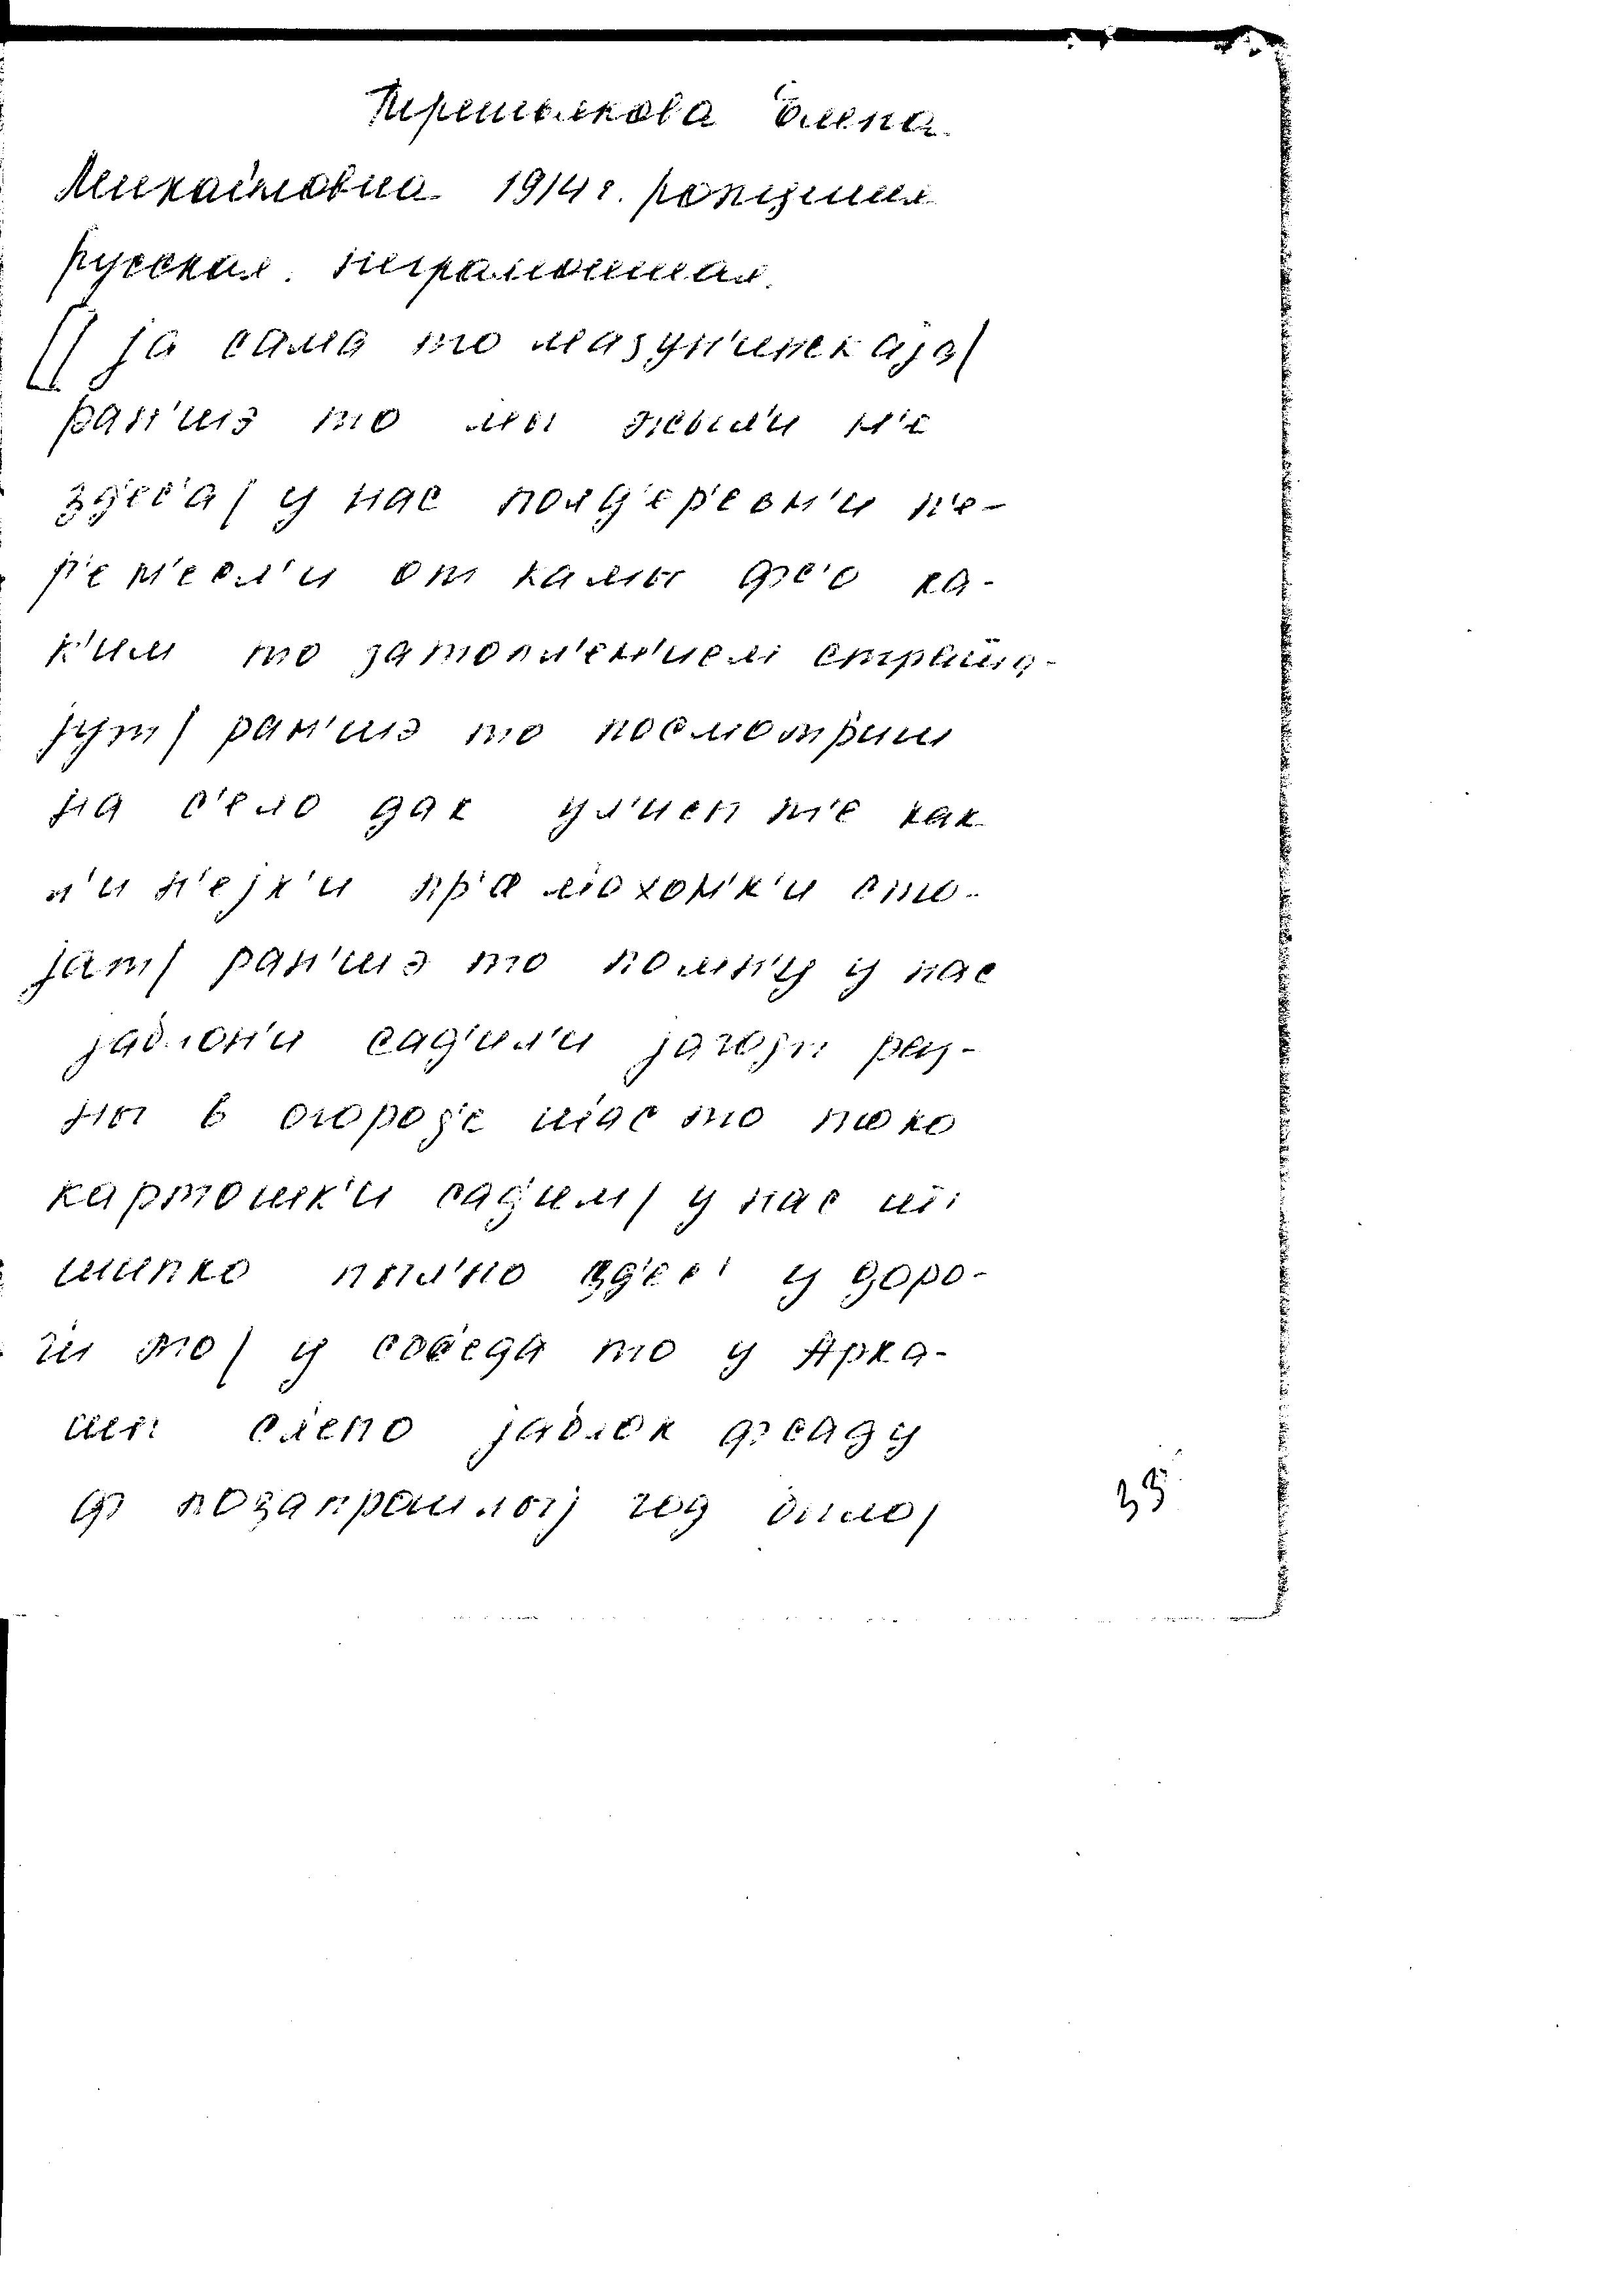 Третьякова Елена
Михайловна 1914 г. рождения
русская. неграмотная.
[/ ja сама то мазун'инскаjа/
ран'шэ то мы жыл'и н'е
зд'ес'а/ у нас полд'ер'евн'и п'е-
р'ен'есл'и от камы фс'о ка-
к'им то затопл'ен'ием страшша-
jут/ ран'шэ то посмотр'иш
на с'ело дак ул'иcы т'е как
л'ин'еjк'и пр'ам'охон'к'и сто-
jат/ ран'шэ то помн'у у нас
jаблон'и сад'ил'и jагоды раз-
ны в огород'е ш'ас то токо
картошк'и сад'им/ у нас и
шыпко пыл'но зд'ес' у доро-
г'и то/ у сос'еда то у Арка-
шы с'лепо jаблок фсаду
ф позапрошлоj год было/
35